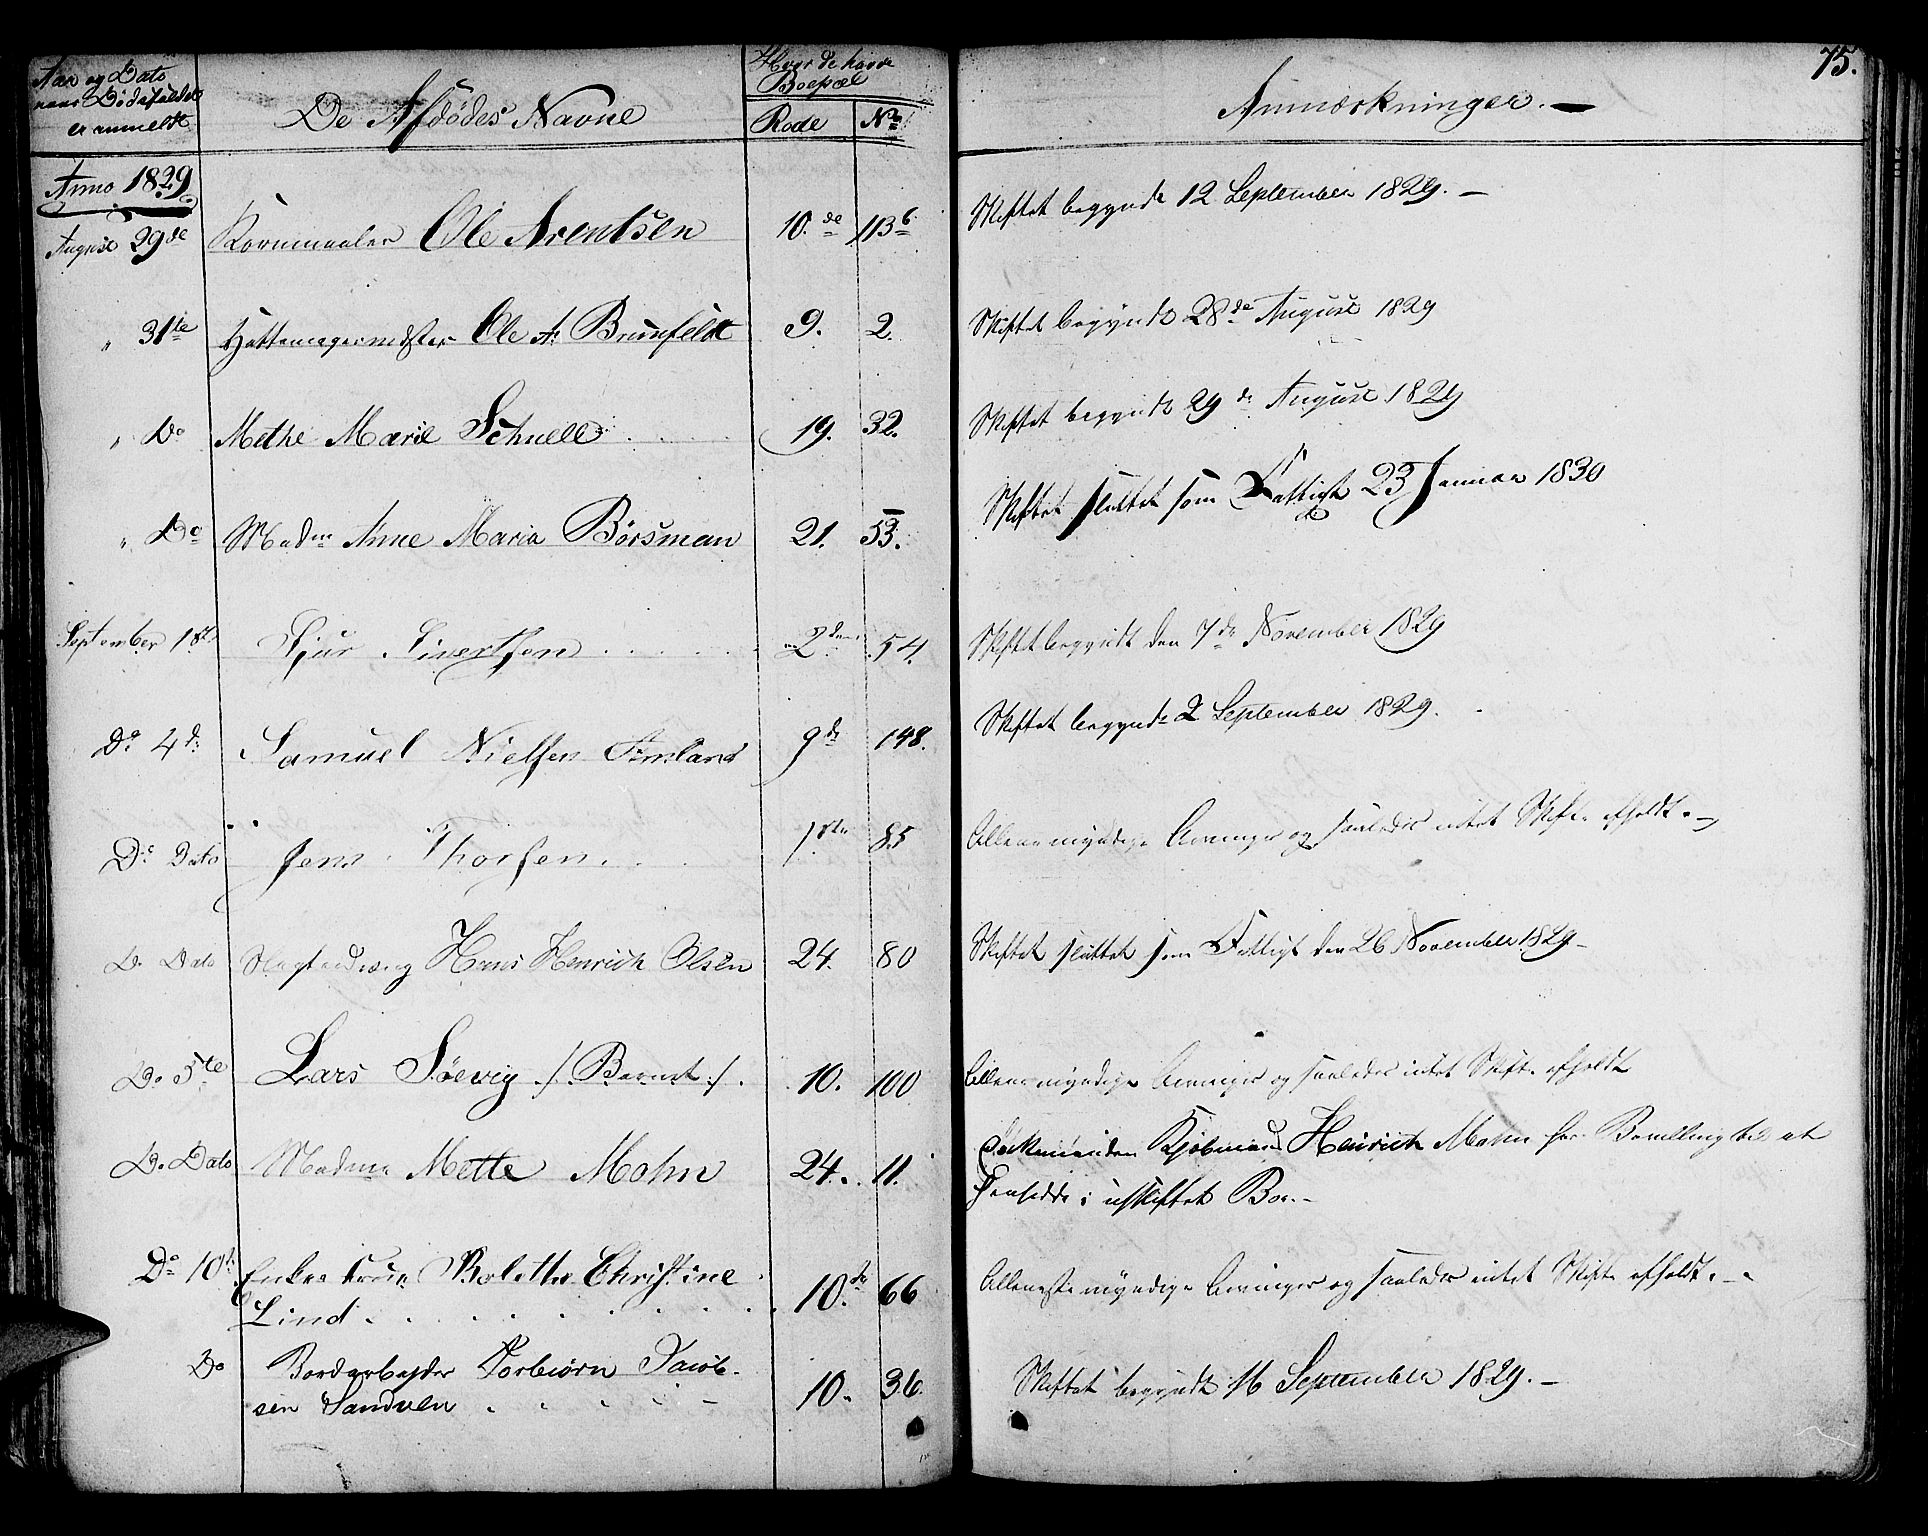 75.
Aar og Dato
naar Dødsfaldet
er anmeldt
De Afdødes Navne
Hvor de havde
Boepæl
Rode
No
Anmærkninger. —
Anno 1829
August 29de Kornmaaler Ole Arentsen 10.de 113b Skiftet begyndt 12 September 1829. —
" 31te Hattemagermester Ole A: Brunfeldt 9. 2. Skiftet begyndt 28de August 1829
" Do Methe Marie Schnell 19. 32. Skiftet begyndt 29de August 1829
" Do Madme Anne Maria Børsman 21. 53. Skiftet sluttet som Fattigt 23 Januar 1830
September 1ste Sjur Sivertsen 2den 54. Skiftet begyndt den 7de November 1829
Do 4de Samuel Nielsen 9de 148. Skiftet begyndt 2 September 1829.
Do Dato Jens Thorsen. 1ste 85 Allene myndige Arvinger og saaledes intet Skifte afholdt. —
Do Dato Hans Henrich Olsen 24. 80 Skiftet sluttet som Fattigt den 26 November 1829 —
Do 5te Lars Søevig /: Barnet :/. 10. 100 Allene myndige Arvinger og saaledes intet Skifte afholdt
Do Dato Madme Mette Mohn 24. 11. Enkemanden Kjøbmand Henrich Mohn har Bevilling til at
hensidde i uskiftet Boe. —
Do 10de Enkefrue Bolethe Christine
Lind . . . . 10.de 66 Alleneste myndige Arvinger og saaledes intet Skifte afholdt. —
Do Bordarbejder Torbiørn Jacob-
sen Sandven 10. 36. Skiftet begyndt 16 September 1829. —